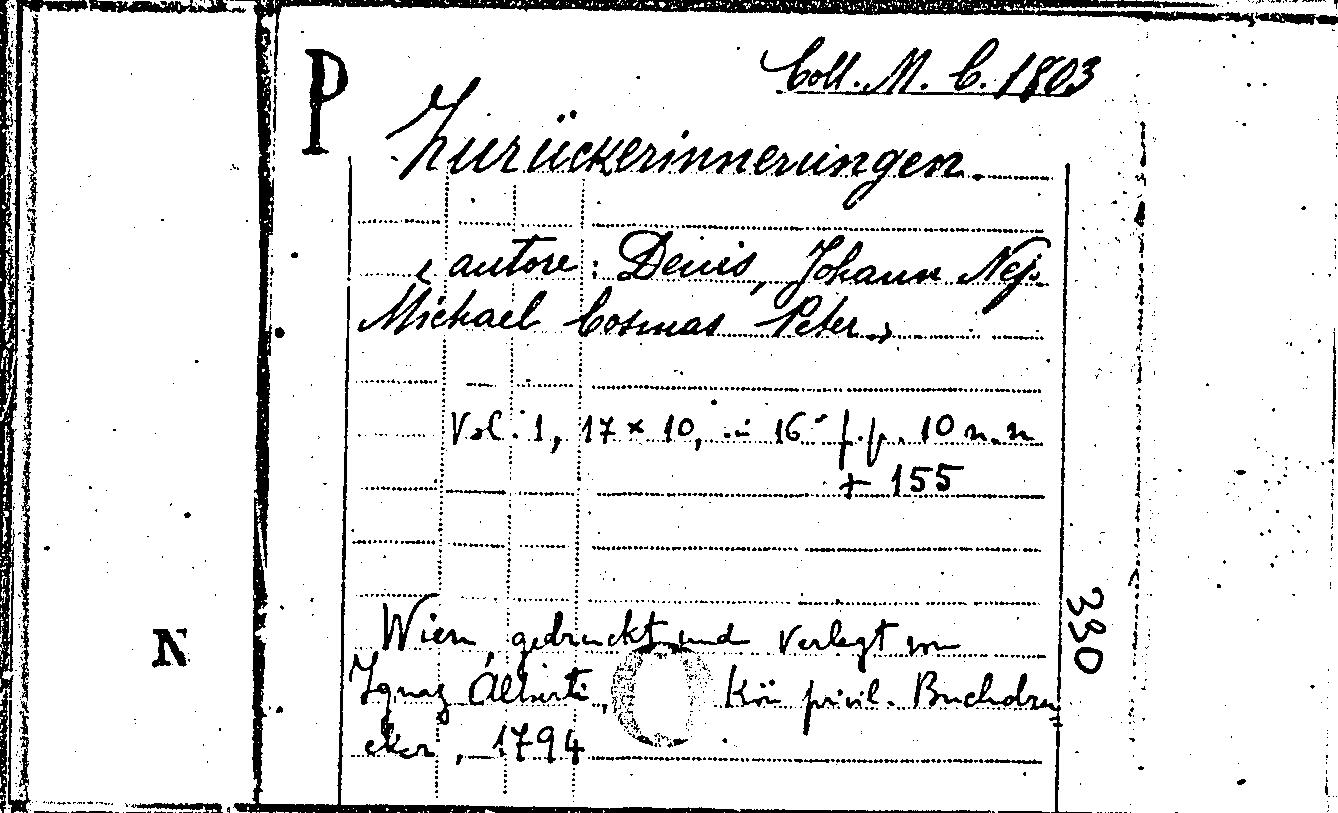 P
Coll. M. C. 1803
Zurückerinnerungen.
(autore: Denis, Johann Nep.
Michael Cosmas Peter.)
Vol: 1, 17 × 10, in 16° f.p. 10 n.n
+ 155
330
N
Wien, gedruckt und verlegt von
Ignaz Alberti, Kön privil. Buchdru
cker, 1794